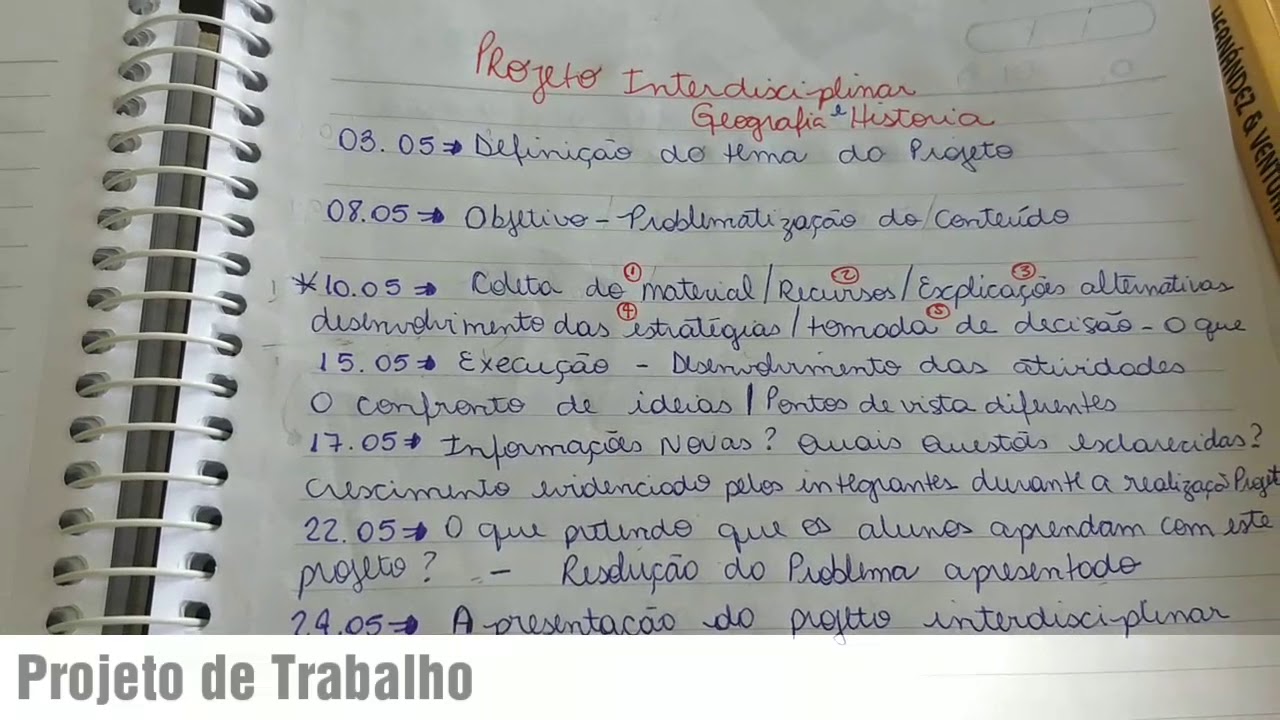 Projeto Interdisciplinar
Geografia e Historia
03.05 → Definição do tema do Projeto
08.05 → Objetivo - Problematização do Conteúdo
*10.05 → Coleta do ① material / Recursos ② / Explicações ③ alternativas
desenvolvimento das ④ estratégias / tomada ⑤ de decisão - O que
15.05 → Execução - Desenvolvimento das atividades
O confronto de ideias / Pontos de vista diferentes
17.05 → Informações Novas? Quais Questões esclarecidas?
Crescimento evidenciado pelos integrantes durante a realização Projet
22.05 → O que pretendo que os alunos aprendam com este
projeto? - Resolução do Problema apresentado
24.05 → Apresentação do projeto interdisciplinar
HERNÁNDEZ & VENTUR
Projeto de Trabalho